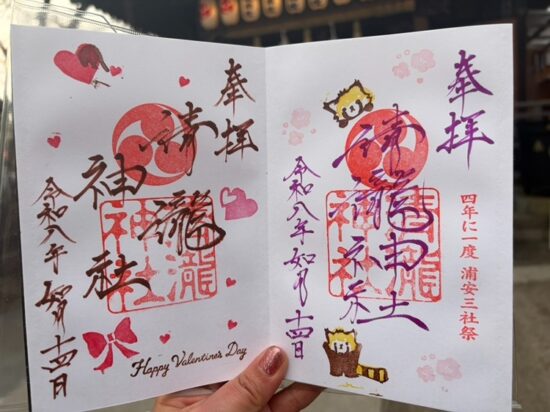 奉拝
四年に一度 浦安三社祭
清瀧神社
清瀧
神社
令和八年 如月 十四日
奉拝
清瀧
神社
清瀧
神社
令和八年 如月 十四日
Happy Valentine's Day